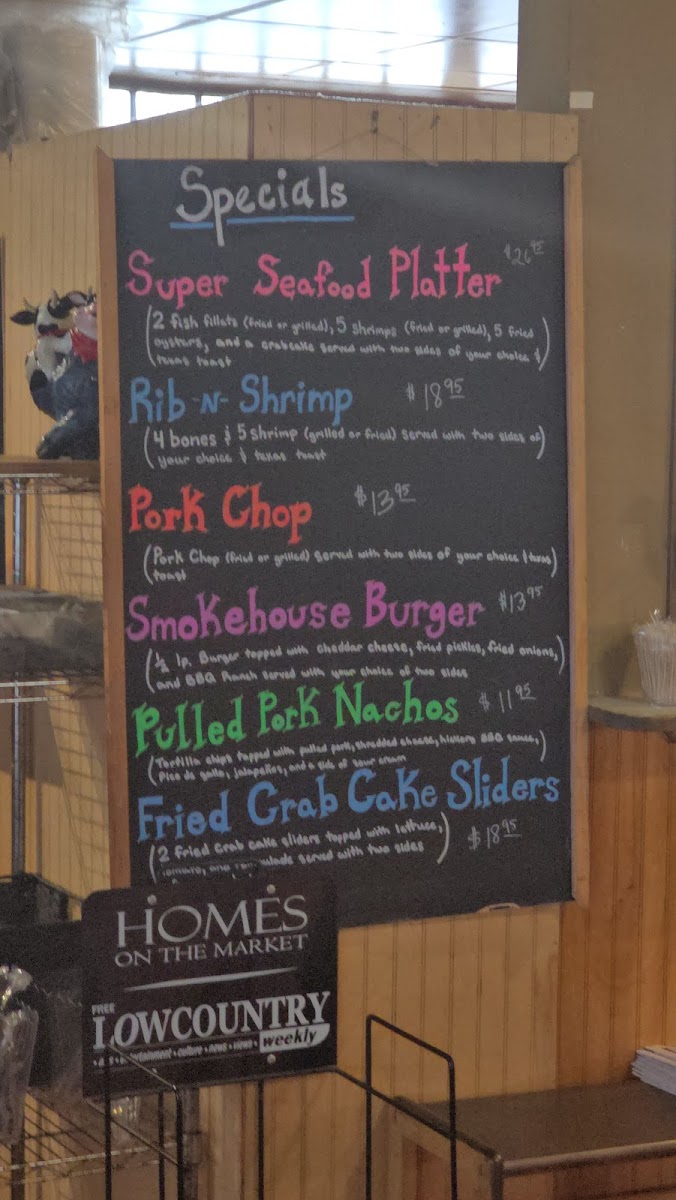 Specials
Super Seafood Platter $26 95
(2 fish fillats (fried or grilled), 5 shrimps (fried or grilled), 5 fried
oysters, and a crabcake served with two sides of your choice &
texas toast)
Rib -N- Shrimp $18 95
(4 bones & 5 shrimp (grilled or fried) served with two sides of
your choice & texas toast)
Pork Chop $13 95
(Pork Chop (fried or grilled) served with two sides of your choice & texas
toast)
Smokehouse Burger $13 95
(½ lp. Burger topped with cheddar cheese, fried pickles, fried onions,
and BBQ Ranch served with your choice of two sides)
Pulled Pork Nachos $11 95
(Tortilla chips topped with pulled pork, shredded cheese, hickory BBQ sauce,
Pico de gallo, jalapeños, and a side of sour cream)
Fried Crab Cake Sliders
(2 fried crab cake sliders topped with lettuce, $18 95
tomato, and served with two sides)
HOMES
ON THE MARKET
FREE
LOWCOUNTRY
weekly
• entertainment • culture • news • views •